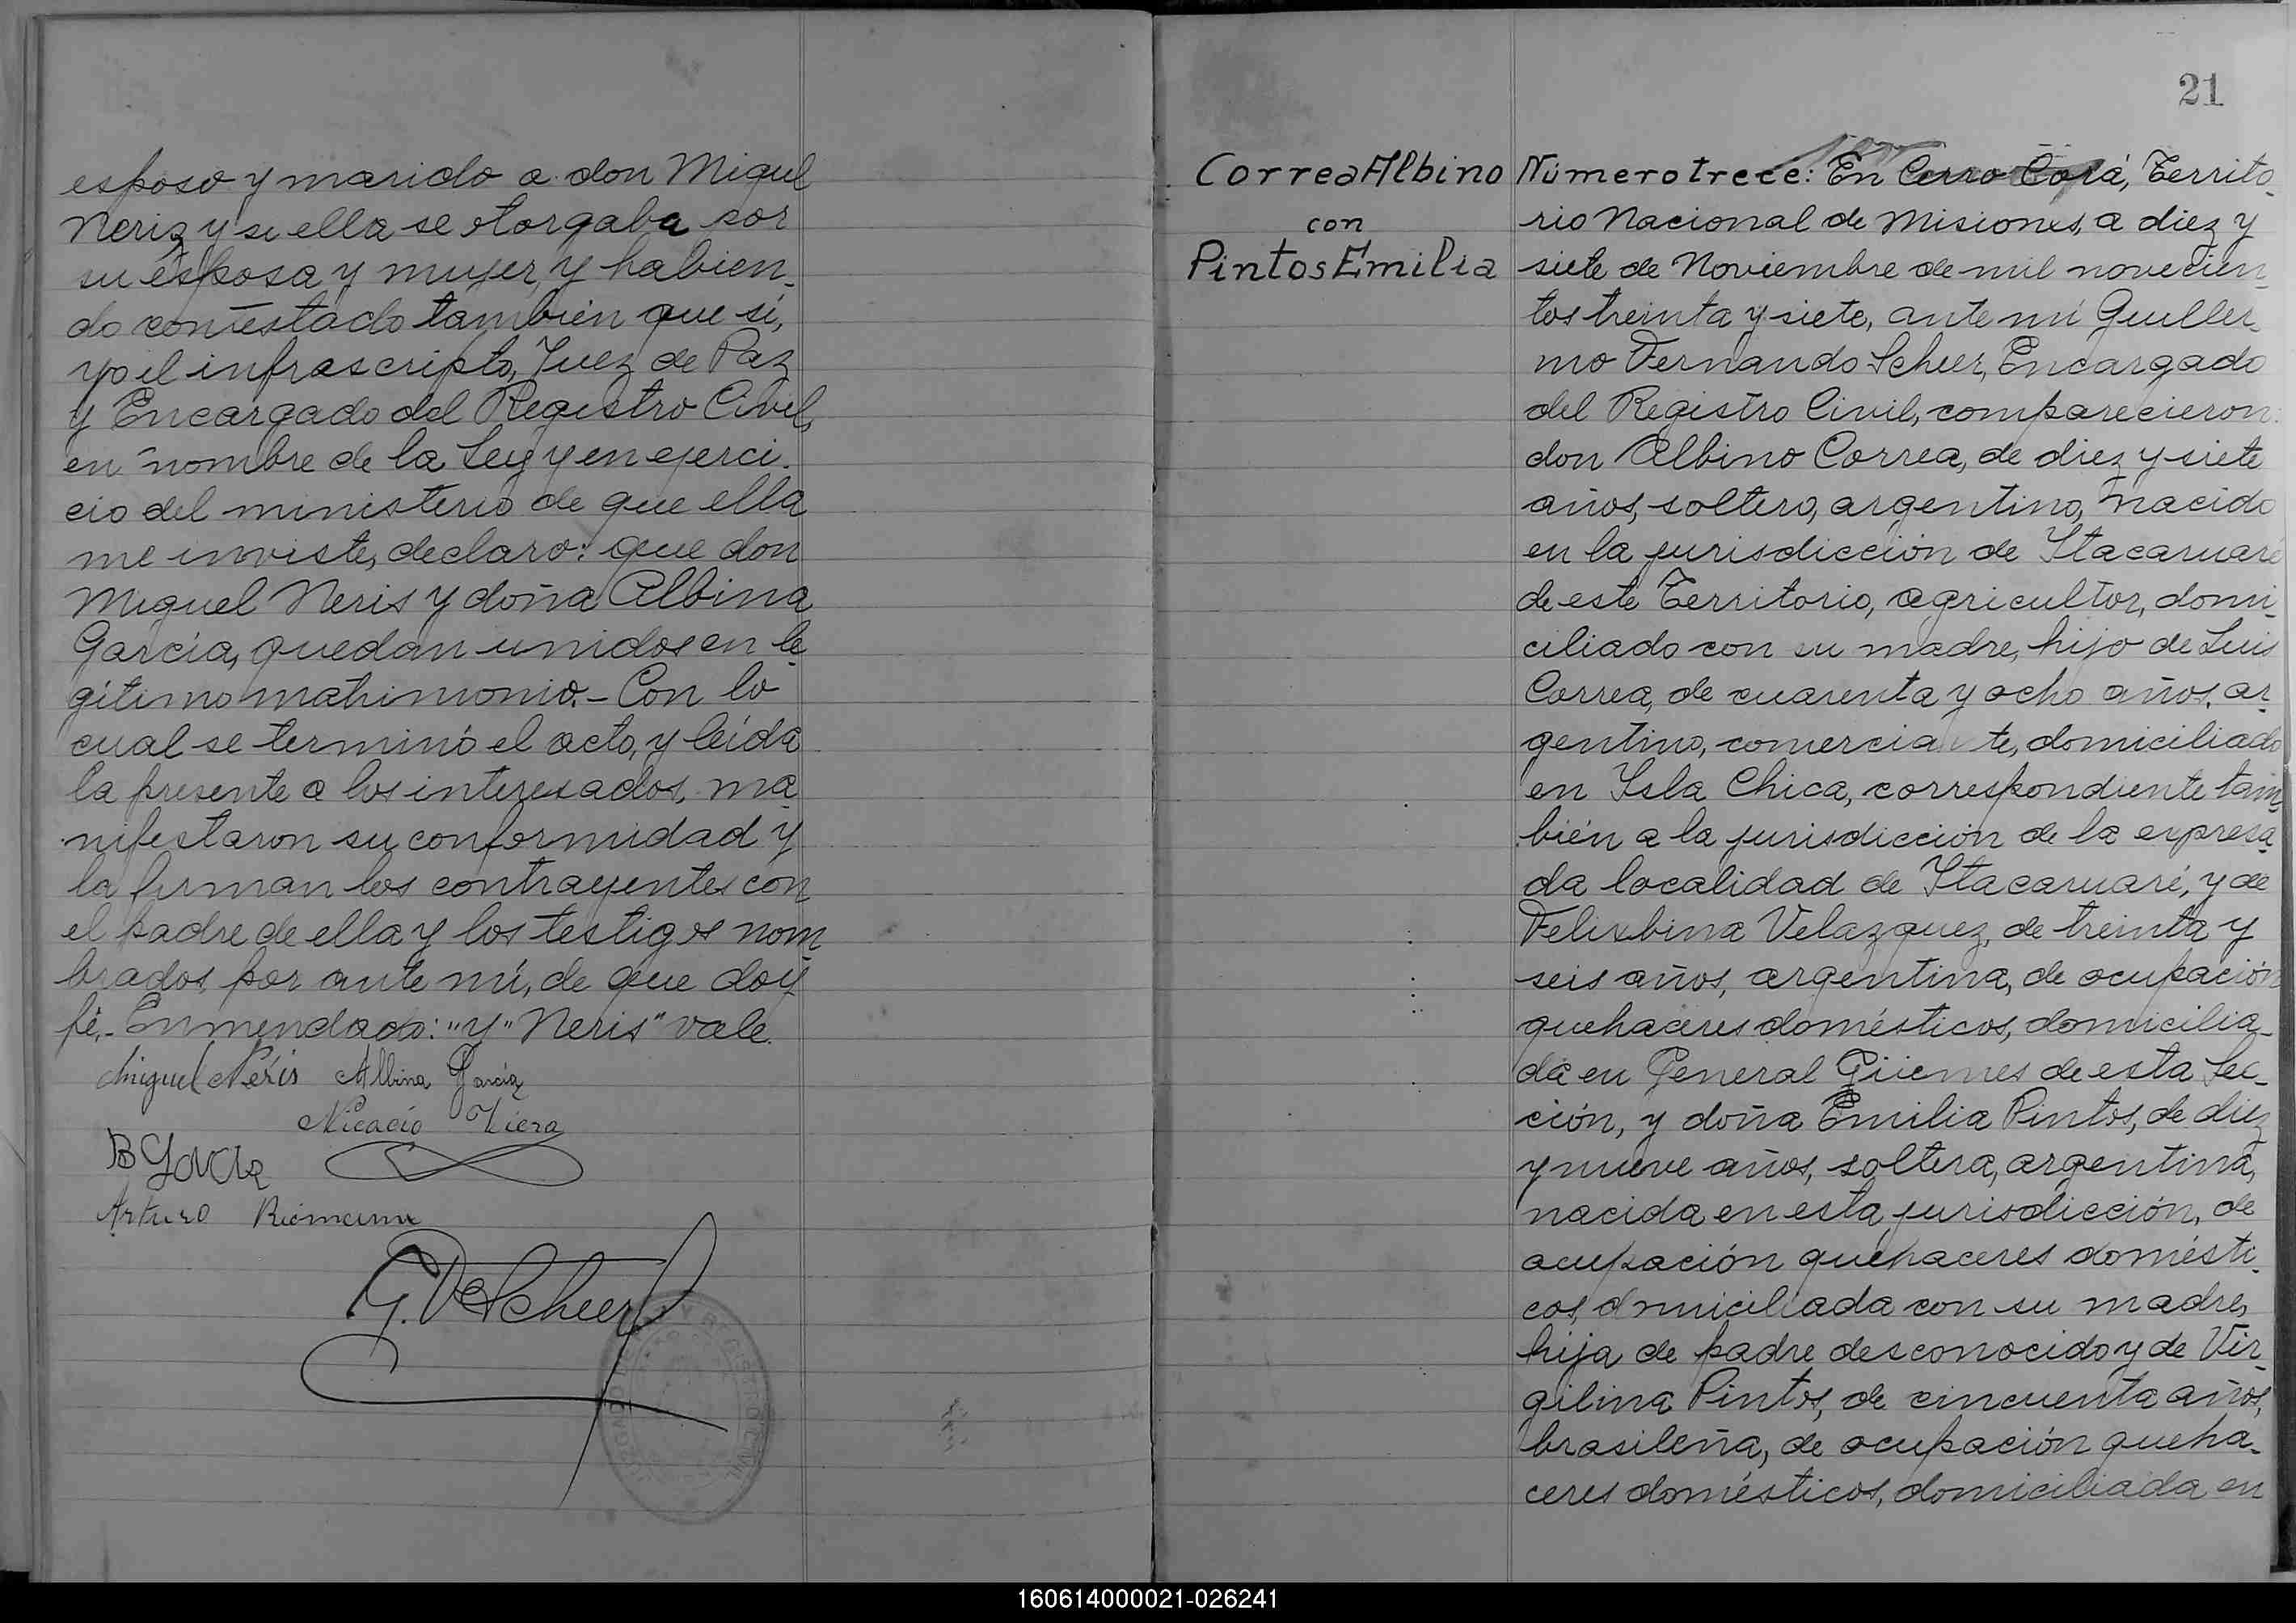 esposo y marido a don Miguel
Neriz y si ella se otorgaba por
su esposa y mujer, y habien-
do contestado también que sí,
yo el infrascripto, Juez de Paz
y Encargado del Registro Civil,
en nombre de la Ley y en ejerci-
cio del ministerio de que ella
me inviste, declaro: que don
Miguel Neris y doña Albina
García, quedan unidos en le-
gítimo matrimonio.- Con lo
cual se terminó el acto, y leída
la presente a los interesados, ma-
nifestaron su conformidad y
la firman los contrayentes con
el padre de ella y los testigos nom-
brados por ante mí, de que doy
fé.- Enmendado: "y" Neris" vale.
Miguel Néris Albina García
Nicacio Viera
B García
Arturo
G. F. Scheer
REGISTRO CIVIL
21
Correa Albino
con
Pintos Emilia
Número trece: En Cerro Corá, Territo-
rio Nacional de Misiones, a diez y
siete de Noviembre de mil novecien-
tos treinta y siete, ante mí Guiller-
mo Fernando Scheer, Encargado
del Registro Civil, comparecieron:
don Albino Correa, de diez y siete
años, soltero, argentino, nacido
en la jurisdicción de Itacaruaré
de este Territorio, agricultor, domi-
ciliado con su madre, hijo de Luis
Correa, de cuarenta y ocho años, ar-
gentino, comerciante, domiciliado
en Isla Chica, correspondiente tam-
bién a la jurisdicción de la expresa-
da localidad de Itacaruaré, y de
Felixbina Velazquez, de treinta y
seis años, argentina, de ocupación
quehaceres domésticos, domicilia-
da en General Güemes de esta Sec-
ción, y doña Emilia Pintos, de diez
y nueve años, soltera, argentina,
nacida en esta jurisdicción, de
ocupación quehaceres domésti-
cos, domiciliada con su madre,
hija de padre desconocido y de Vir-
gilina Pintos, de cincuenta años,
brasileña, de ocupación queha-
ceres domésticos, domiciliada en
160614000021-026241